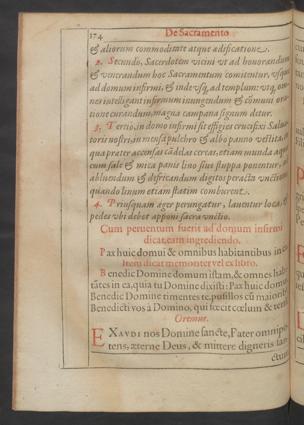 174 De Sacramento
& aliorum commoditate atque ædificatione.
2. Secundo, Sacerdotem vicini vt ad honorandum
& venerandum hoc Sacramentum comitentur, vsque
ad domum infirmi, & inde vsq, ad templum: vtq, om-
nes intelligant infirmum inungendum & cōmuni ora-
tione curandum, magna campana signum detur.
3. Tertio, in domo infirmi sit effigies crucifixi Salua-
toris nostri, in mensa pulchro & albo panno vestita,
qua præter accensas cādelas ceras, etiam munda aqua
cum sale & mica panis lino siue stuppa ponentur, ad
abluendum & defricandum digitos peracta vnctione
quando linum etiam statim comburent.
4. Priusquam æger perungatur, lauentur loca, &
pedes vbi debet apponi sacra vnctio.
Cum peruentum fuerit ad domum infirmi
dicat eam ingrediendo.
Pax huic domui & omnibus habitantibus in ea
Item dicat memoriter vel ex libro.
Benedic Domine domum istam, & omnes habi-
tātes in ea, quia tu Domine dixisti: Pax huic domui,
Benedic Domine timentes te, pusillos cū maiorib'
Benedicti vos à Domino, qui fœcit cœlum & terrā
Oremus.
EXAVDI nos Domine sancte, Pater omnipo-
tens, æterne Deus, & mittere digneris san-
ctum